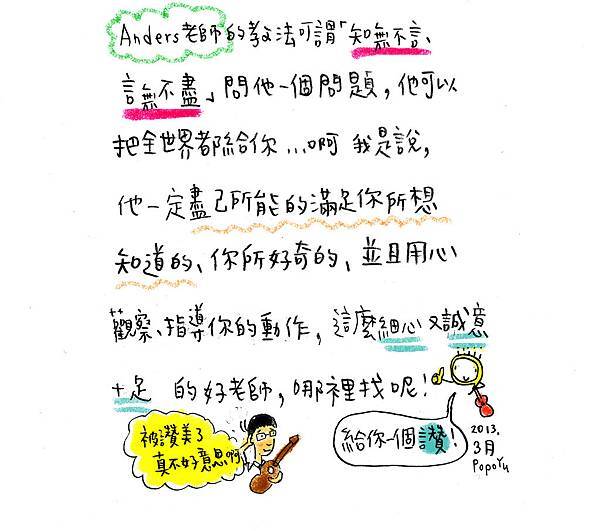 Anders老師的教法可謂「知無不言、
言無不盡」問他一個問題，他可以
把全世界都給你...啊 我是說，
他一定盡己所能的滿足你所想
知道的、你所好奇的、並且用心
觀察、指導你的動作，這麼細心又誠意
十足 的好老師，哪裡找呢！
被讚美了
真不好意思啊
給你一個讚！
2013.
3月
PopoYu